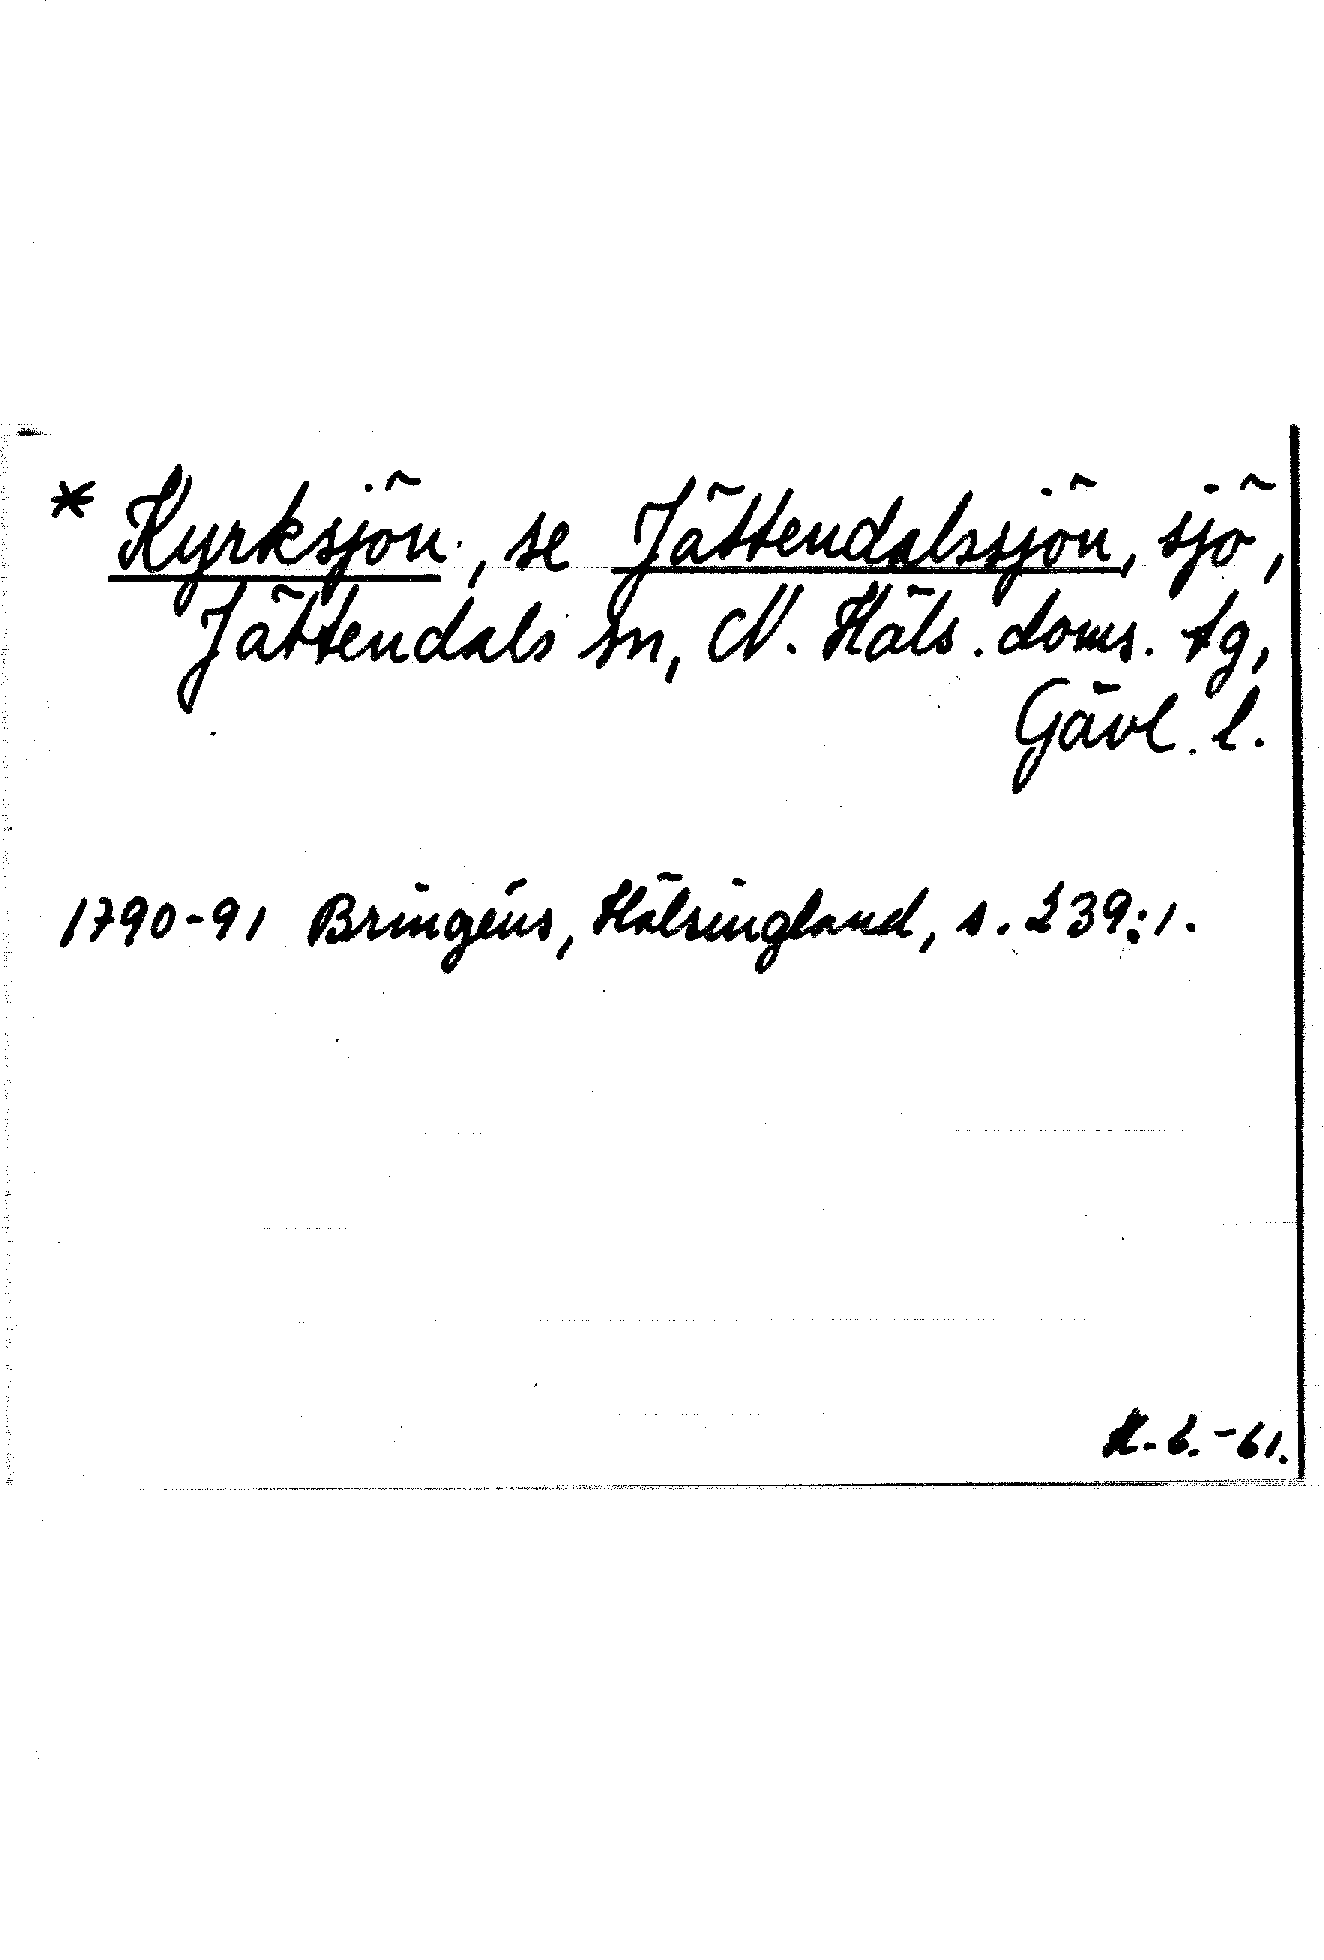 * Kyrksjön, se Jättendalssjön, sjö,
Jättendals sn, N. Häls. doms. tg,
Gävl. l.
1790-91 Bringéus, Hälsingland, s. 239:1.
K. B. -61.